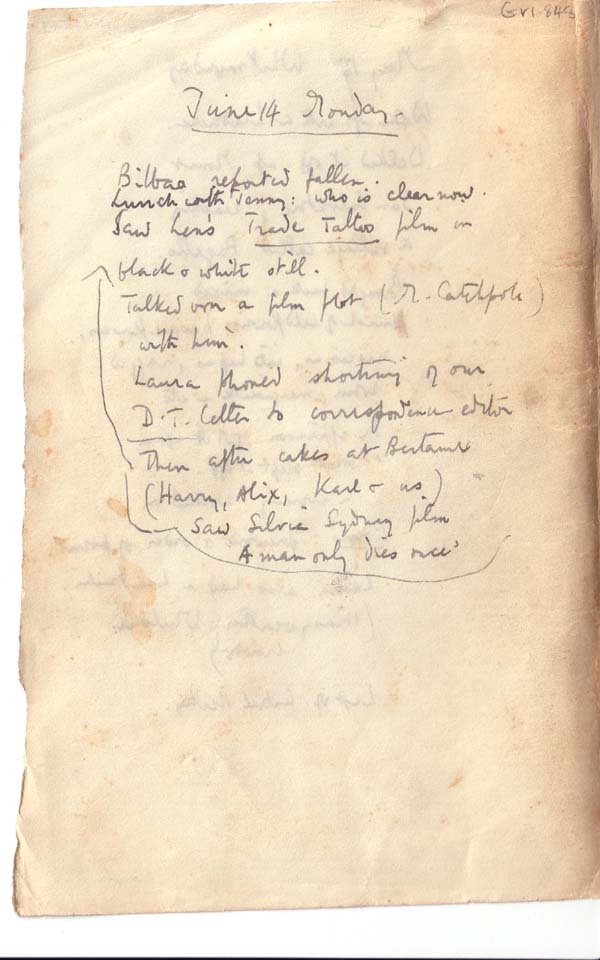 GVI 848
June 14 Monday.
Bilbao reported fallen.
Lunch with Jenny: who is clear now.
Saw Len's Trade Tattoo film in
black & white still.
Talked over a film plot (M. Catchpole)
with him.
Laura phoned shortening of our
D.T. letter to correspondence editor
Then after cakes at Bertams
(Harry, Alix, Karl & us)
Saw Silvia Sydney film
A man only dies once'